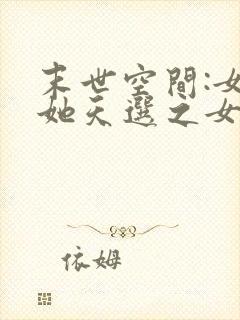 末世空間:女
她天選之女
依姆